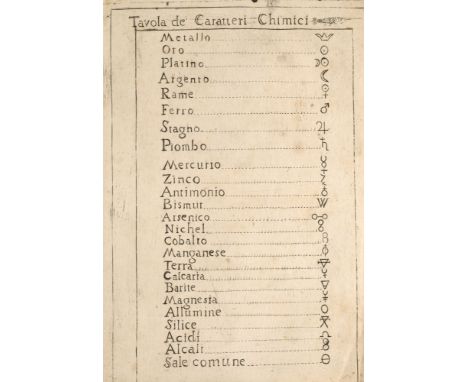 Tavola de' Caratteri Chimici
Metallo
Oro
Platino
Argento
Rame
Ferro
Stagno
Piombo
Mercurio
Zinco
Antimonio
Bismut
Arsenico
Nichel
Cobalto
Manganese
Terra
Calcaria
Barite
Magnesia
Allumine
Silice
Acidi
Alcali
Sale comune